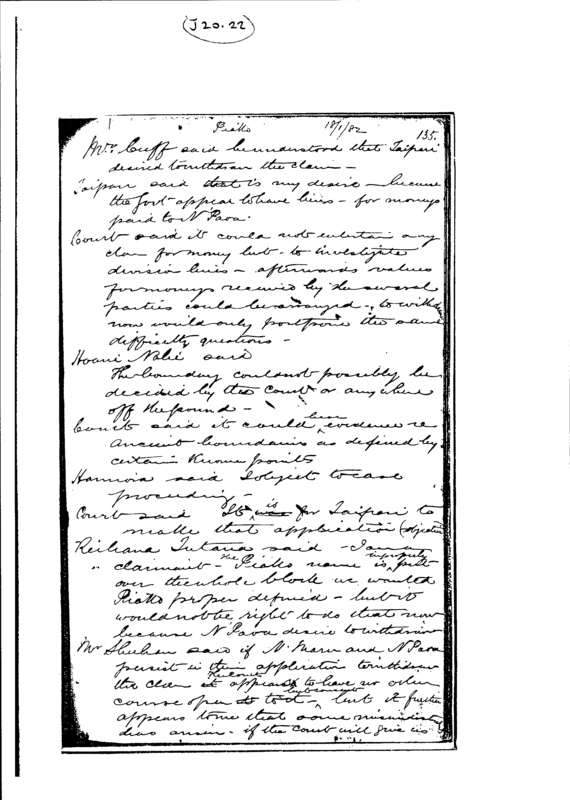 J20.22
Piako 18/1/82 135.
Mr. Cuff said he understood that Taipari
desired to withdraw the claim -
Taipari said that is my desire - because
the Govt appear to have liens - for moneys
paid to N Paoa.
Court said it could not entertain any
claim for money but - to investigate
division lines - afterwards values
for moneys received by the several
parties could be arranged - to withdraw
now would only postpone the same
difficulty questions -
Hoani Nahe said
The boundary could not possibly be
decided by the Court or any where
off the ground -
Court said it could hear evidence re
ancient boundaries as defined by
certain known points
said I object to case
proceeding -
Court said It is for Taipari to
make that application (objection
Reihana Tutana said - I am a
" claimant - the Piako name is improperly put
over the whole block we wanted
Piako proper defined - but it
would not be right to do that now
because N Paoa desire to withdraw
Mr Sheehan said if N. Maru and N Paoa
persist in their application to withdraw
the claim the Court appears to have no other
course open to it - but it
appears to me that some
has arisen - if the Court will give us